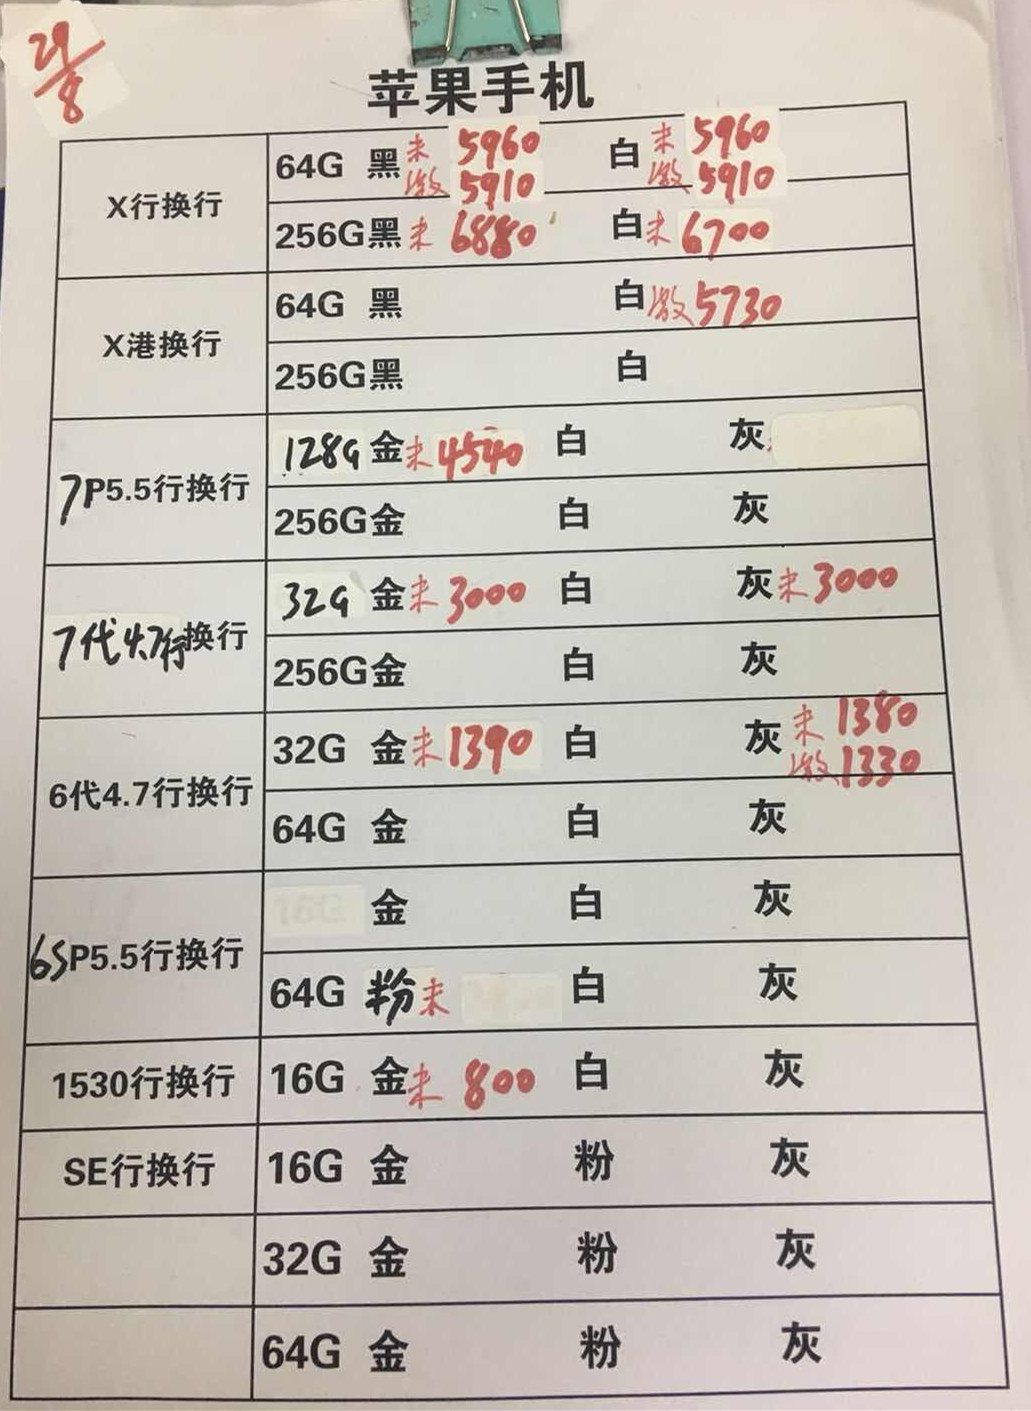 29/8
苹果手机
X行换行
64G 黑 未 5960 白 未 5960
激 5910 激 5910
256G 黑 未 6880 白 未 6700
X港换行
64G 黑 白 激 5730
256G 黑 白
7P5.5行换行
128G 金 未 4540 白 灰
256G 金 白 灰
7代4.7行换行
32G 金 未 3000 白 灰 未 3000
256G 金 白 灰
6代4.7行换行
32G 金 未 1390 白 灰 未 1380
激 1330
64G 金 白 灰
6SP5.5行换行
16G 金 白 灰
64G 粉 未 白 灰
1530行换行 16G 金 未 800 白 灰
SE行换行 16G 金 粉 灰
32G 金 粉 灰
64G 金 粉 灰